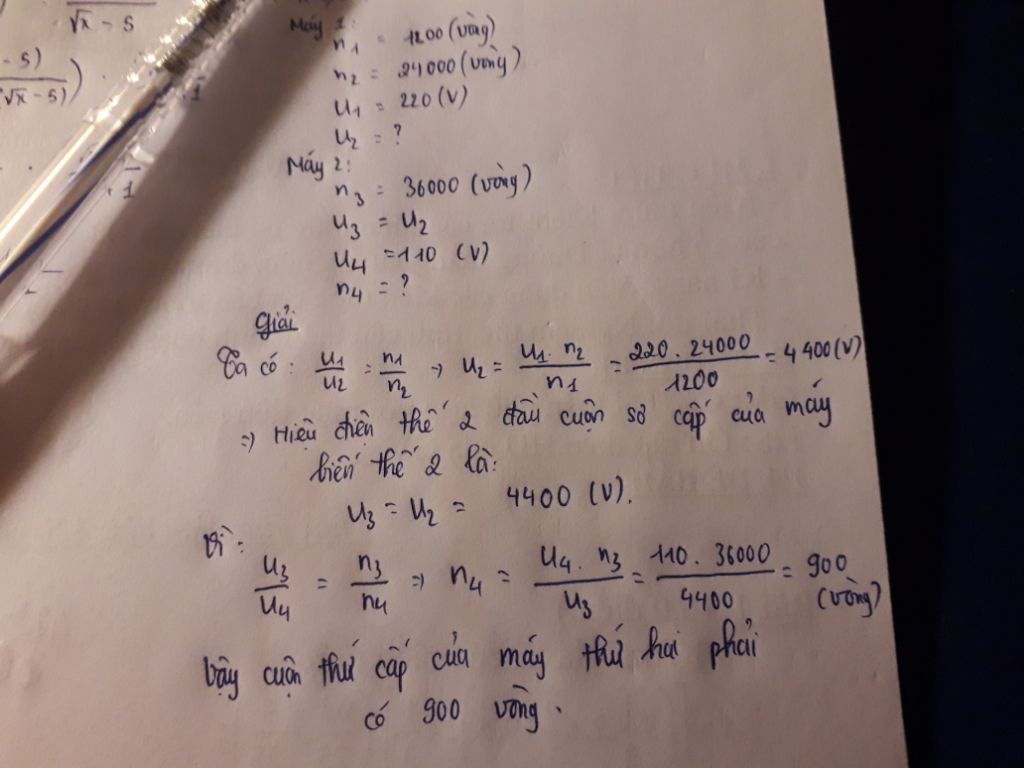 √x - 5
- 5)
(√x - 5)
1
1
Máy 1:
n1 = 1200 (vòng)
n2 = 24000 (vòng)
u1 = 220 (V)
u2 = ?
Máy 2:
n3 = 36000 (vòng)
u3 = u2
u4 = 110 (V)
n4 = ?
Giải
Ta có: u1/u2 = n1/n2 → u2 = u1. n2/n1 = 220. 24000/1200 = 4400 (V)
=> Hiệu điện thế 2 đầu cuộn sơ cấp của máy
biến thế 2 là:
u3 = u2 = 4400 (V).
Vì:
u3/u4 = n3/n4 => n4 = u4. n3/u3 = 110. 36000/4400 = 900
(vòng)
Vậy cuộn thứ cấp của máy thứ hai phải
có 900 vòng.